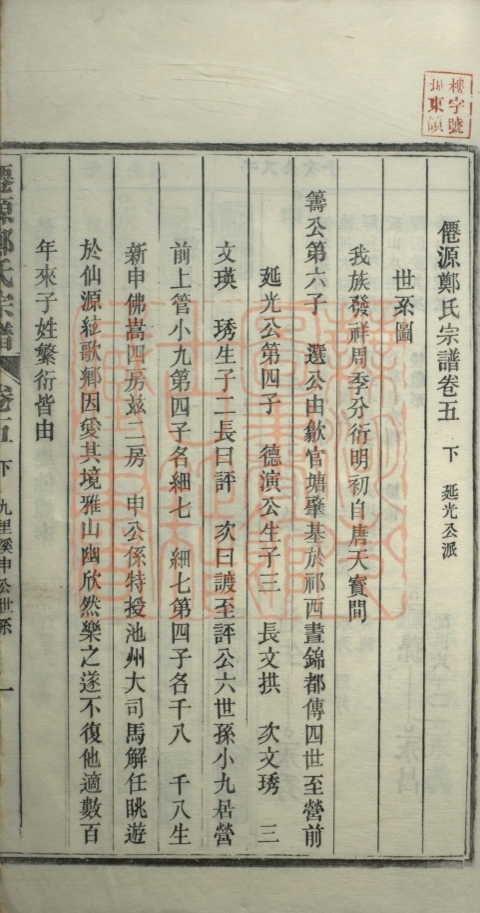 僊源鄭氏宗譜卷五 下 延光公派
世系圖
我族發祥周季分衍明初自唐天寶間
籌公第六子 選公由歙官塘肇基於祁西晝錦都傳四世至營前
延光公第四子 德演公生子三 長文拱 次文琇 三
文瑛 琇生子二長曰評 次曰謢至評公六世孫小九居營
前上管小九第四子名細七 細七第四子名千八 千八生
新申佛嵩四房玆二房 申公係特授池州大司馬解任眺遊
於仙源絃歌鄉因愛其境雅山幽欣然樂之遂不復他適數百
年來子姓繁衍皆由
僊源鄭氏宗譜 卷五 下 九里溪申公世系 一
樓字號
東傎